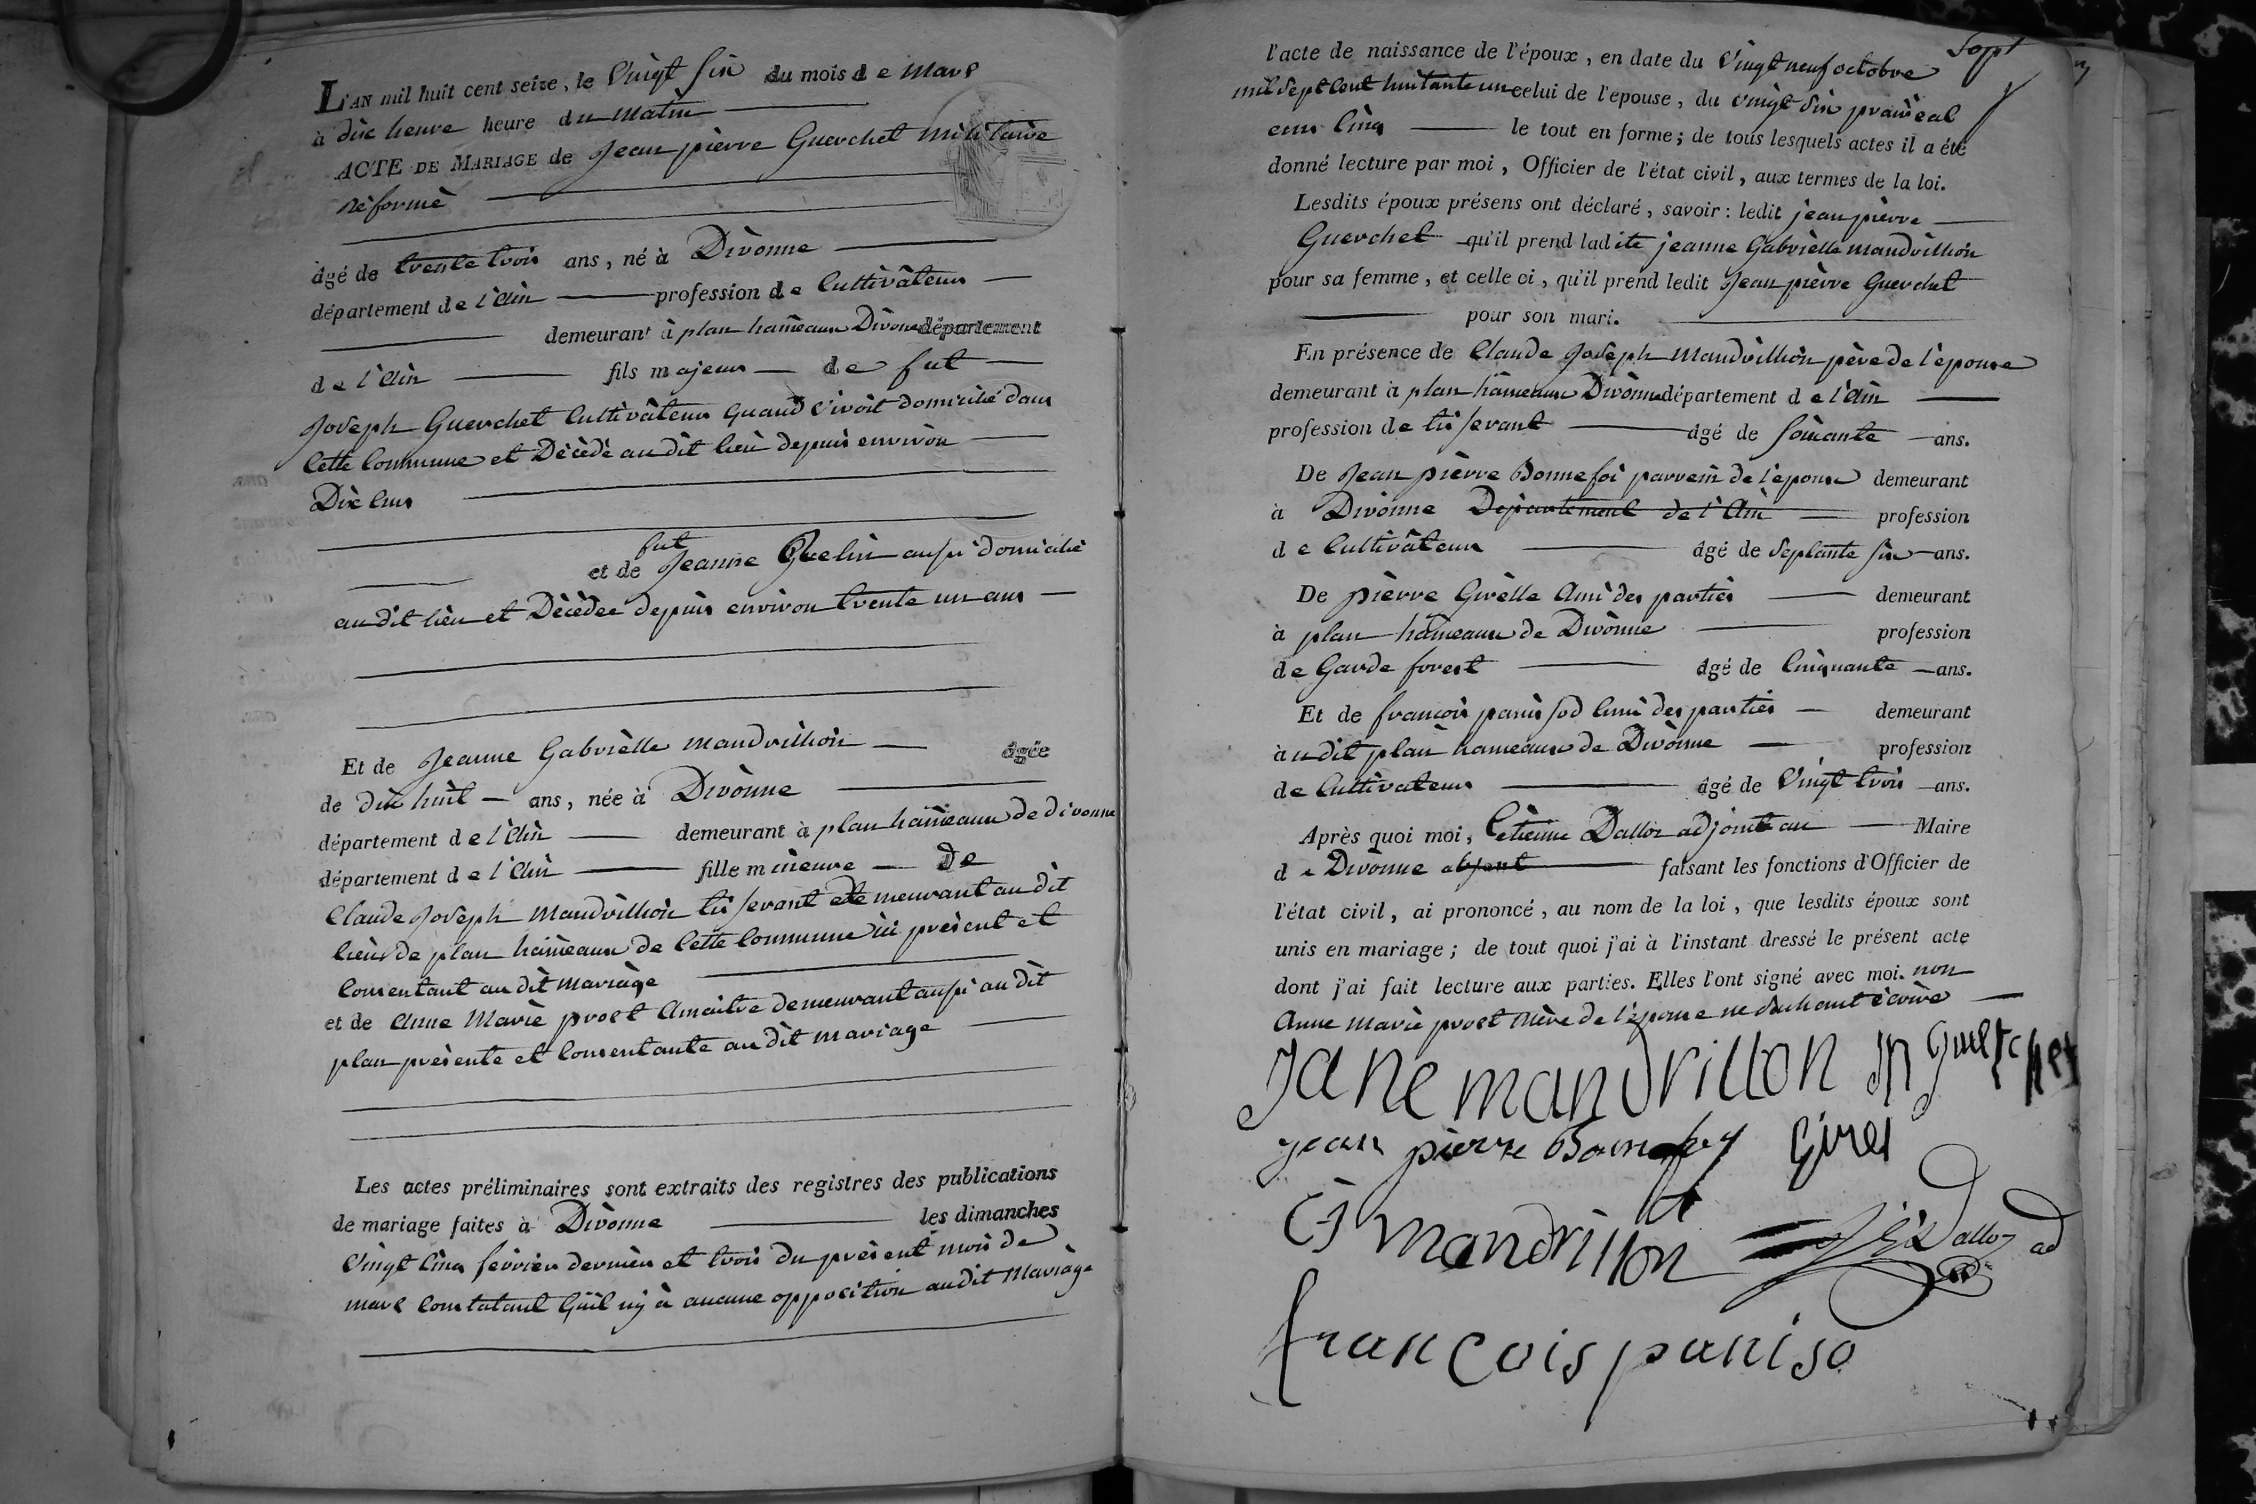 L'AN mil huit cent seize, le Vingt Six du mois de Mars
à dix heure heure du matin
ACTE DE MARIAGE de Jean pièrre Guerchet militaire
réformé
âgé de trente trois ans, né à Divonne
département de l'Ain profession de Cultivateur
demeurant à plan hameaux Divonne département
de l'Ain fils majeur de fut
Joseph Guerchet Cultivâteur quand vivoit domicilié dans
Cette Commune et Décédé au dit lieu depuis environ
Dix ans
fut
et de Jeanne aussi domicilié
au dit lieu et Décédée depuis environ trente un ans
Et de Jeanne Gabrièlle mandrillion âgée
de dix huit ans, née à Divonne
département de l'Ain demeurant à plan hameaux de divonne
département de l'Ain fille mineure de
Claude Joseph Mandrillion tisserant demeurant au dit
lieux de plan hameaux de Cette Commune ici présent et
Consentant au dit mariage
et de Anne Marie prost demeurant aussi au dit
plan présente et Consentante au dit mariage
Les actes préliminaires sont extraits des registres des publications
de mariage faites à Divonne les dimanches
Vingt Cinq février dernier et trois du présent mois de
mars Constatant Qu'il n'y à aucune opposition audit Mariage
l'acte de naissance de l'époux, en date du Vingt neuf octobre
mil Sept Cent huitante un celui de l'epouse, du vingt Six prairéal
ann Cinq le tout en forme; de tous lesquels actes il a été
donné lecture par moi, Officier de l'état civil, aux termes de la loi.
Lesdits époux présens ont déclaré, savoir: ledit jean pièrre
Guerchet qu'il prend ladite jeanne Gabrièlle mandrillion
pour sa femme, et celle ci, qu'il prend ledit Jean pièrre Guerchet
pour son mari.
En présence de Claude Joseph Mandrillion père de l'épouse
demeurant à plan hâmeaux Divonne département de l'Ain
profession de tisserant âgé de Soixante ans.
De Jean pièrre Bonnefoi parrein de l'épouse demeurant
à Divonne Département de l'Ain profession
de Cultivâteur âgé de Septante six ans.
De pièrre Girèlle Ami des parties demeurant
à plan hâmeaux de Divonne profession
de Garde forest âgé de Cinquante ans.
Et de francois panissod Ami des parties demeurant
à u dit plan hameaux de Divonne profession
de Cultivateur âgé de Vingt trois ans.
Après quoi moi, Etienne Dalloz adjoint au Maire
de Divonne faisant les fonctions d'Officier de
l'état civil, ai prononcé, au nom de la loi, que lesdits époux sont
unis en mariage; de tout quoi j'ai à l'instant dressé le présent acte
dont j'ai fait lecture aux parties. Elles l'ont signé avec moi. non
Anne Marie prost mère de l'épouse ne sachant écrire
Jane mandrillon
jean pierre
mandrillon Dalloz ad
françois paniso